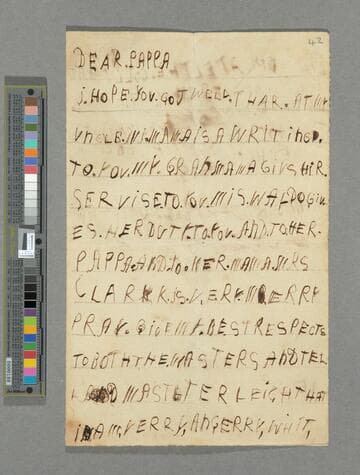 42
DEAR.PAPPA
I.HOPE.YOU.GOT WELL.THAR.AT MY
VNCLE.W.MAMA IS A WRITINGD.
TO.YOU.MY.GRANMAMA GIVS HIR.
SERVISE.TO.YOU.MIS.WALDO GIV
ES.HER DUTY.TO.YOU.AND.TO HER.
PAPPA.AND.TO.HER.MAMA.MRS
CLARK.IS.VERY MERRY
PRAY.GIVE MY.BEST RESPECTS
TO BOTH THE MASTERS AND TEL
MASTER LEIGH THAT
I AM,VERRY,ANGERRY,WHIT,